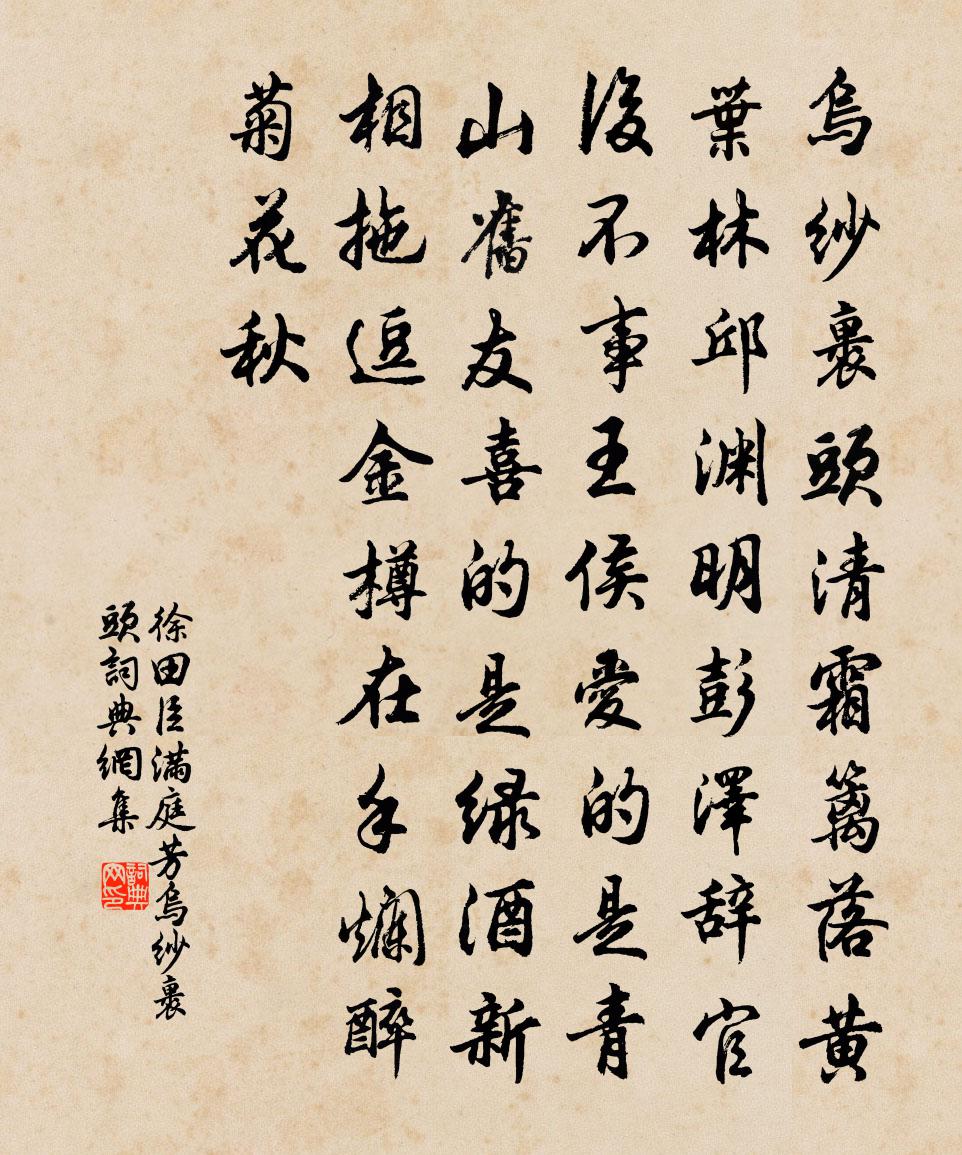 烏紗裹頭清霜籬落黃
葉林邱渊明彭澤辞官
後不事王侯愛的是青
山舊友喜的是绿酒新
相拖逗金樽在手爛醉
菊花秋
徐田臣满庭芳烏纱裹
頭詞典網集
詞典
网印